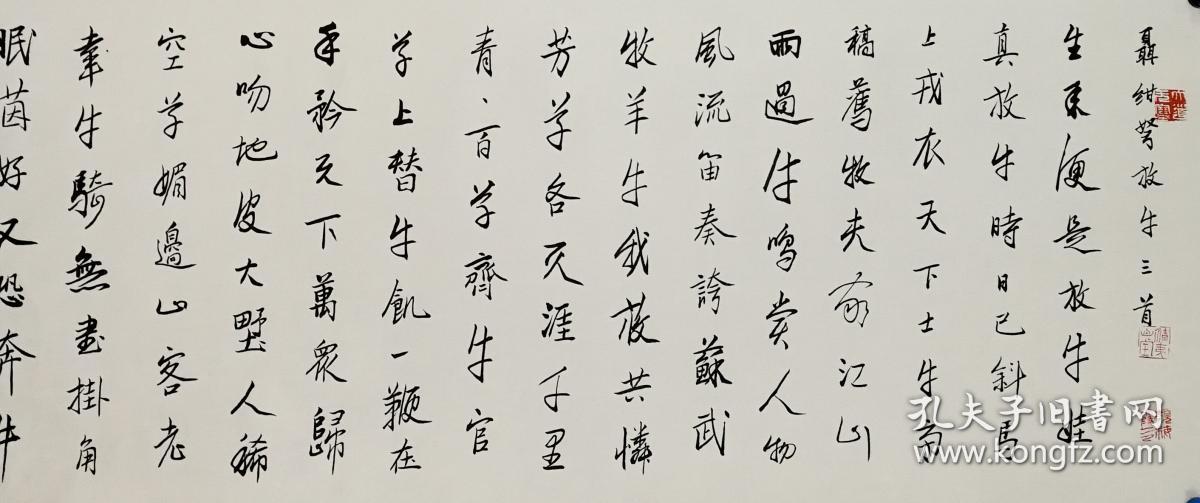 聶紺弩放牛三首
生來便是放牛娃
真放牛時日已斜馬
上戎衣天下士牛旁
稿薦牧夫家江山
雨過牛鳴賞人物
風流笛奏誇蘇武
牧羊牛我放共憐
芳草各天涯千里
青、百草齊牛官
草上替牛飢一鞭在
手矜天下萬眾歸
心吻地皮大墅人稀
空草媚邊山客老
牽牛騎無書掛角
眠茵好又恐奔牛
孔夫子旧书网
www.kongfz.com